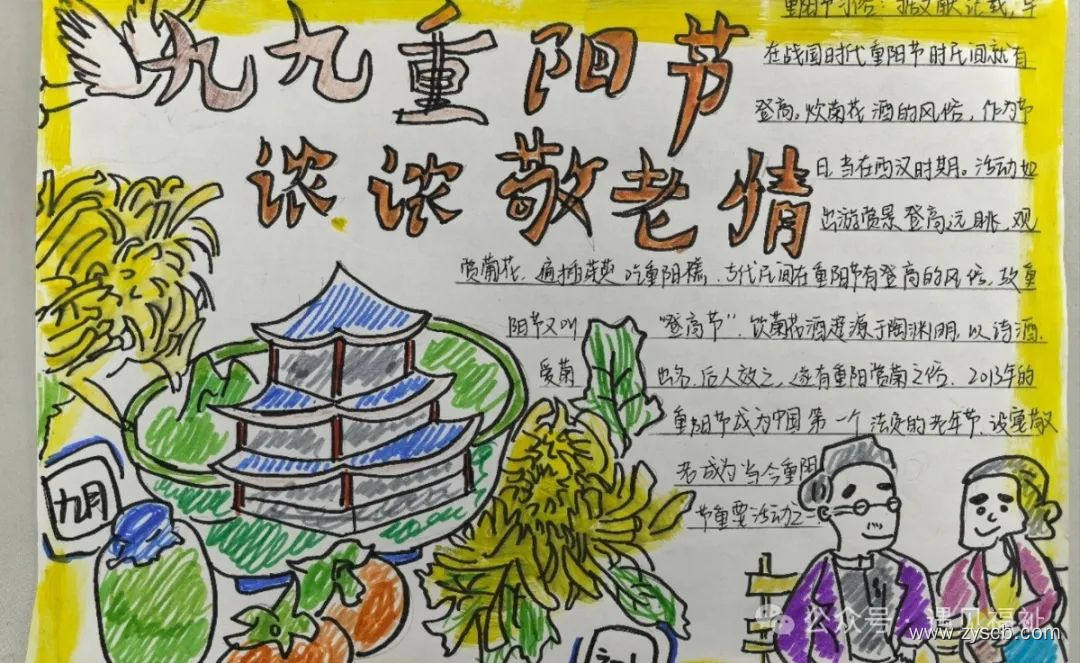 九九重阳节
浓浓敬老情
重阳节习俗：据文献记载,早
在战国时代重阳节时民间就有
登高。炊菊花 酒的风俗，作为节
日,当在西汉时期。活动如
出游赏景 登高远眺,观
赏菊花,遍插茱萸 吃重阳糕,古代民间在重阳节有登高的风俗,故重
阳节又叫 "登高节",饮菊花酒起源于陶渊明,以诗酒.
爱菊 出名,后人效之,遂有重阳赏菊之俗,2013年的
重阳节成为中国第一个法定的老年节,设宴敬
老成为当今重阳
节重要活动之一.
九月
公众号·遇见福祉
www.zyscb.com